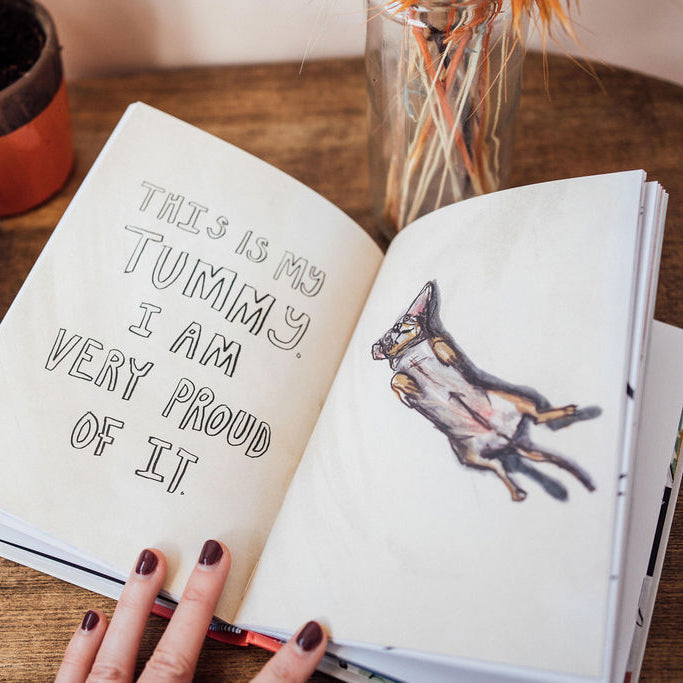 THIS IS MY
TUMMY.
I AM
VERY PROUD
OF IT.